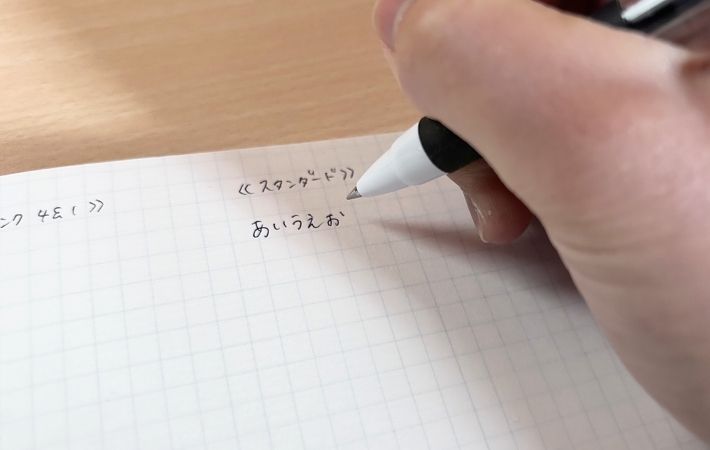 《スタンダード》
ンク
あいうえお